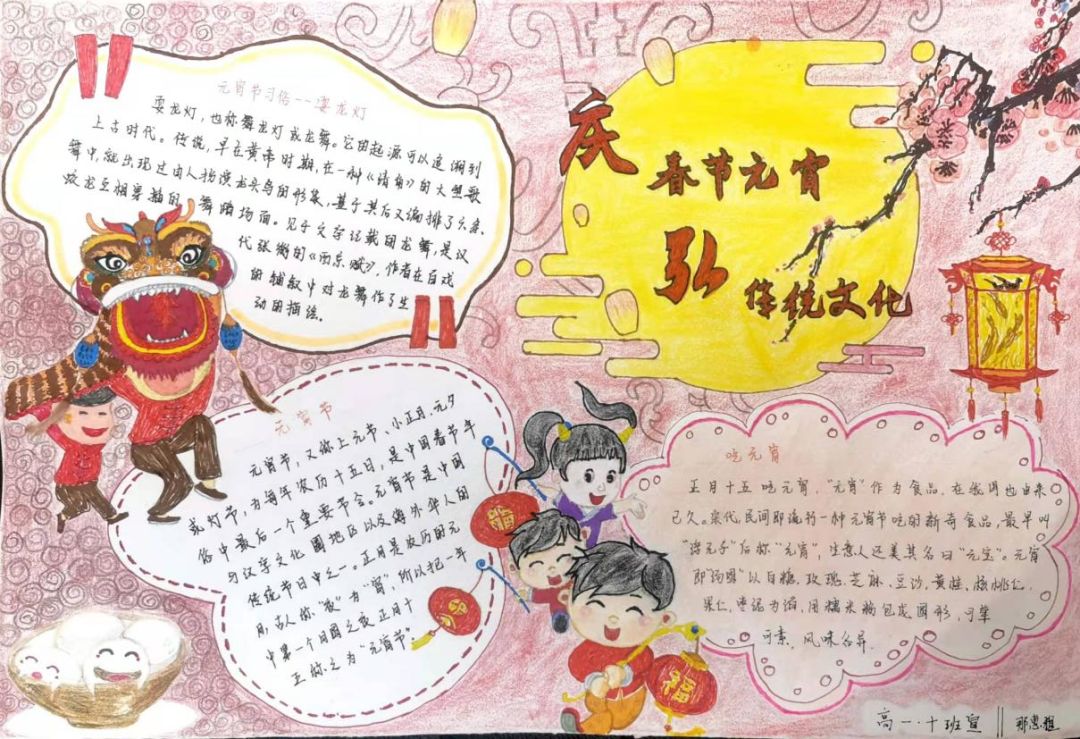 元宵节习俗--耍龙灯
耍龙灯，也称舞龙灯或龙舞。它的起源可以追溯到
上古时代。传说，早在黄帝时期，在一种《清角》的大型歌
舞中，就出现过由人扮演龙头鸟的形象，其于其后又编排了六条
蛟龙互相穿插的舞蹈场面。见于文字记载的龙舞，是汉
代张衡的《西京赋》，作者在百戏
的铺叙中对龙舞作了生
动的描绘。
庆
春节元宵
弘
传统文化
元宵节
元宵节，又称上元节、小正月、元夕
或灯节，为每年农历十五日，是中国春节年
俗中最后一个重要节令。元宵节是中国
与汉字文化圈地区以及海外华人的
传统节日中之一。正月是农历的元
月，古人称"夜"为"宵"，所以把一年
中第一个月圆之夜正月十
五称之为"元宵节"。
吃元宵
正月十五吃元宵，"元宵"作为食品，在我国也由来
已久。宋代，民间即流行一种元宵节吃的新奇食品，最早叫
"浮元子"后称"元宵"，生意人还美其名曰"元宝"。元宵
即"汤圆"以白糖、玫瑰、芝麻、豆沙、黄桂、核桃仁、
果仁、枣泥为馅，用糯米粉包成圆形，可荤
可素，风味各异.
福
福
高一·十班宣